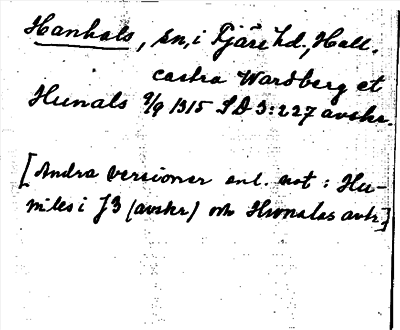 Hanhals, sn, i Fjäre hd., Hall.
castra Wardberg et
Hunals 9/9 1315 SD 3:227 avskr.
[Andra versioner enl. not: Hu-
miles i J3 (avskr) och Hunalas avtr]